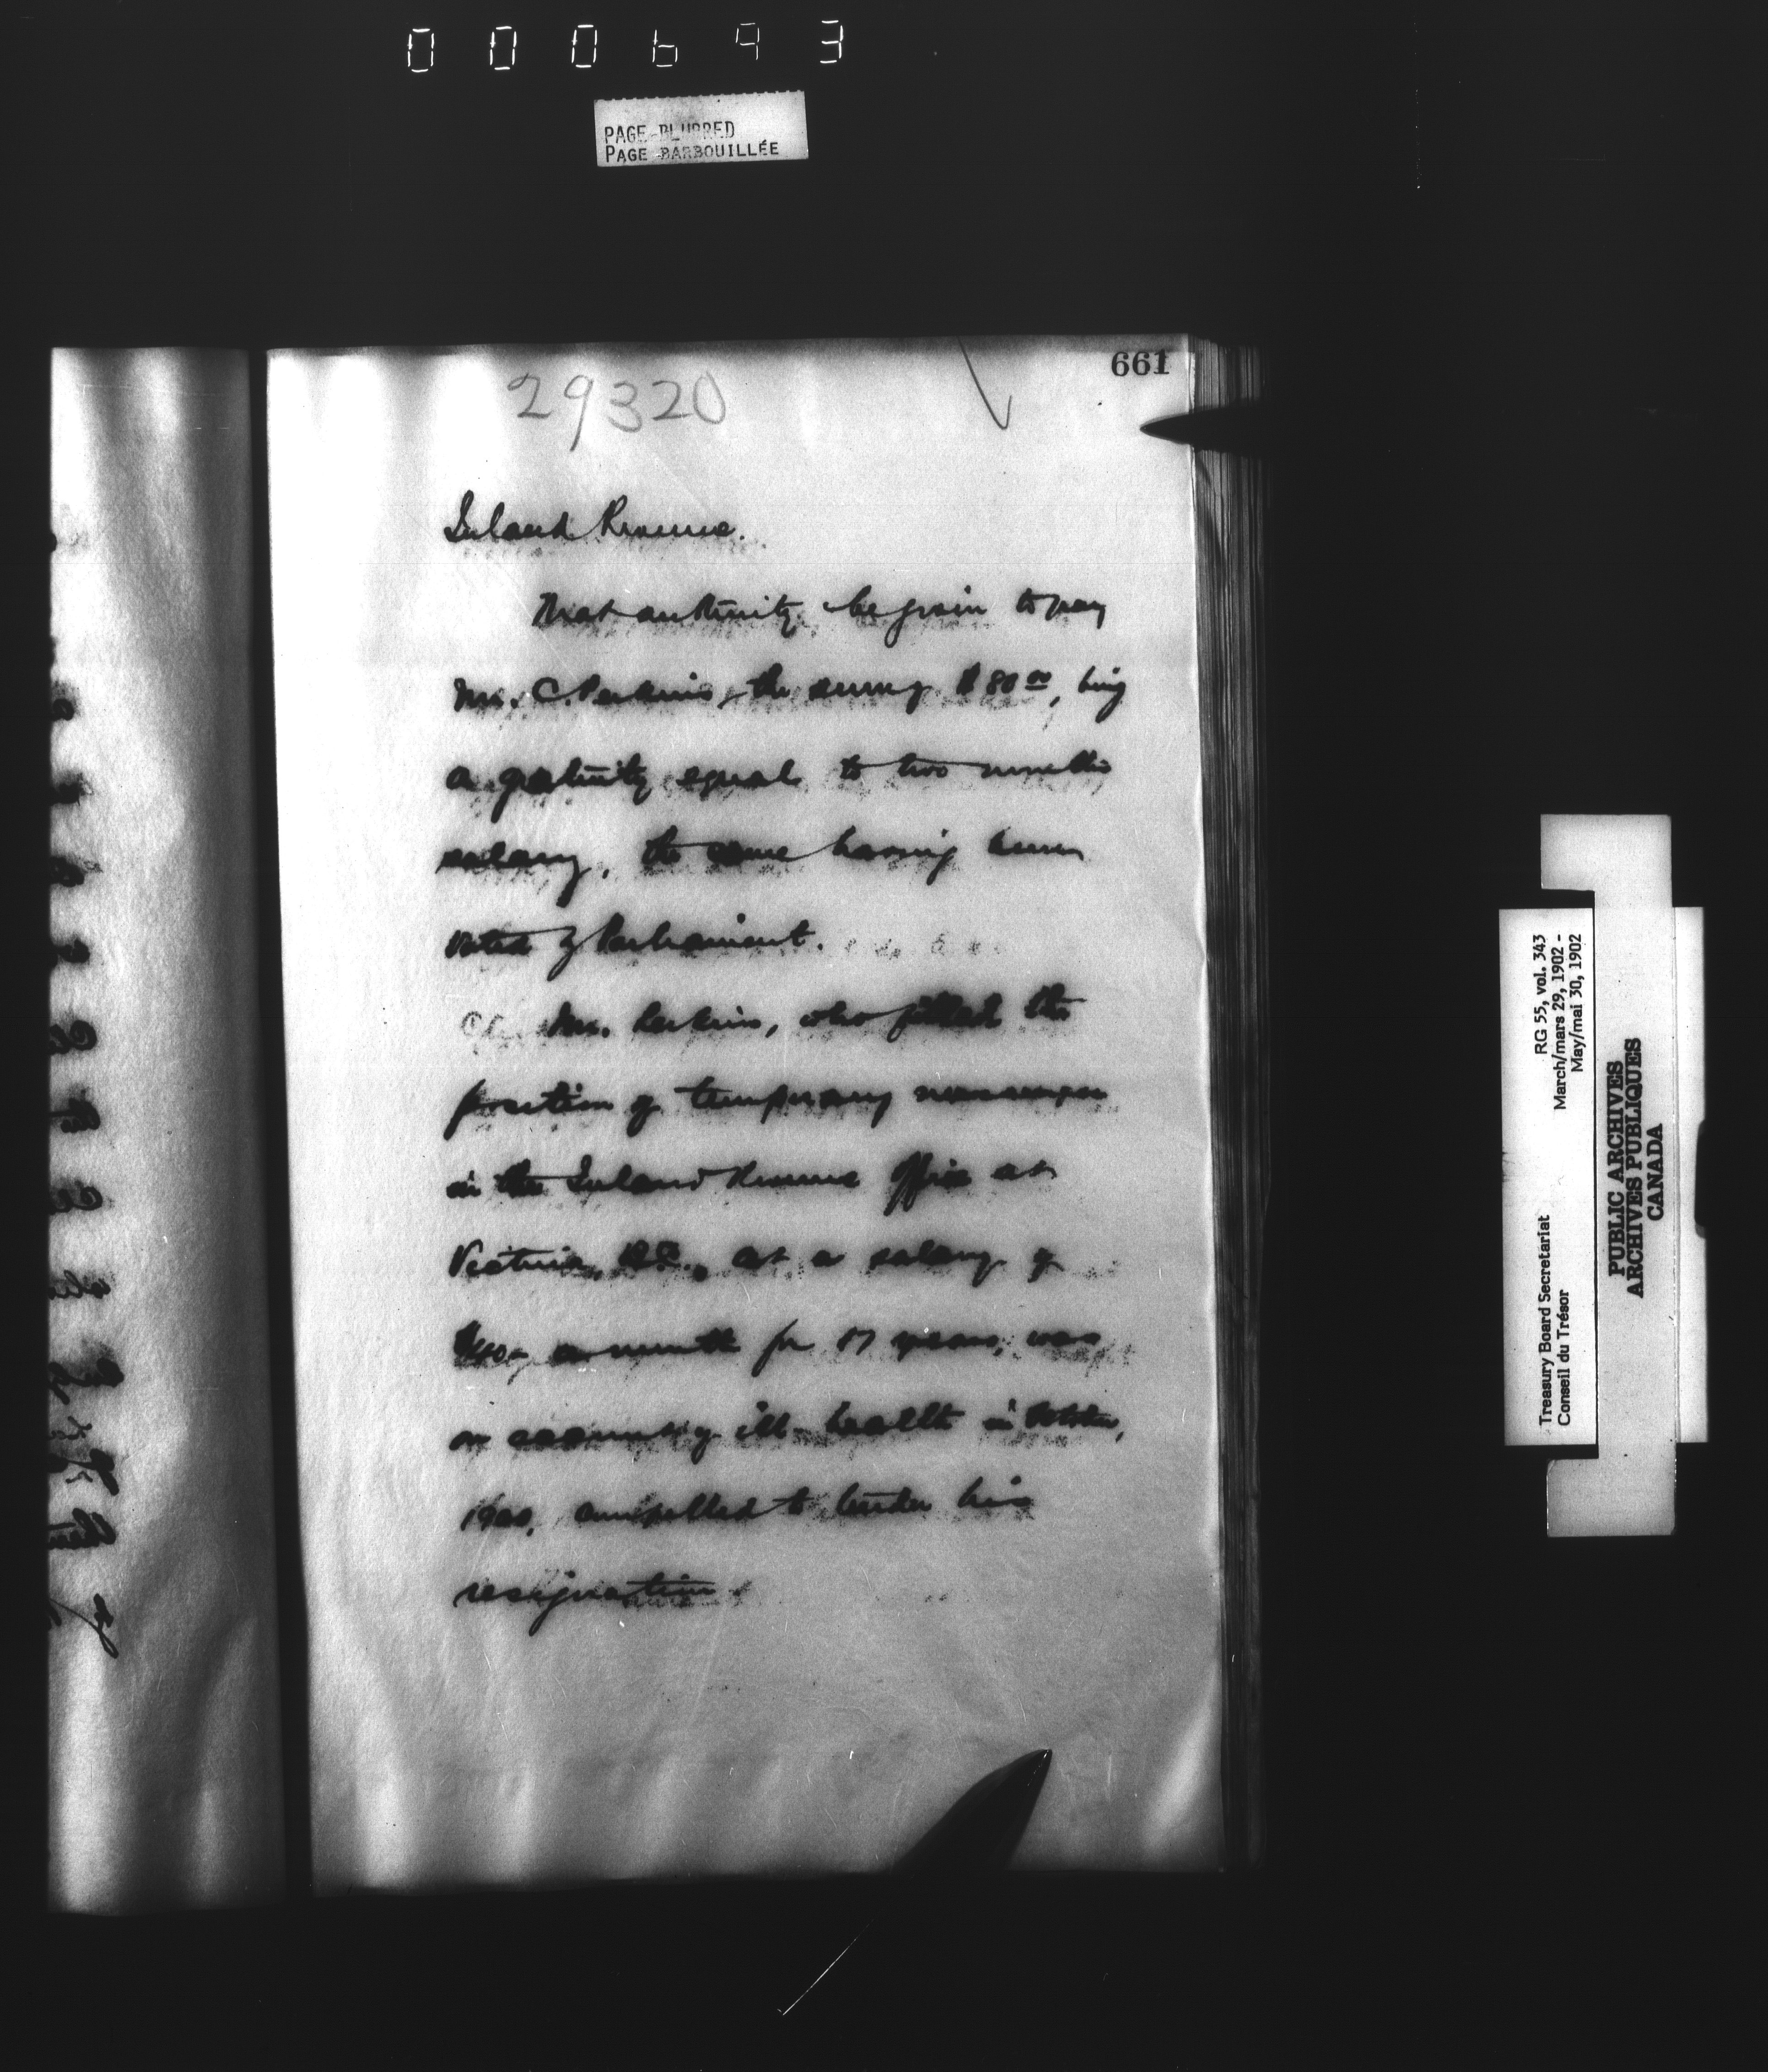 000693
PAGE BLURRED
PAGE BARBOUILLÉE
661
29320
Inland Revenue.
That authority be given to pay
Mr. C. Perkins, the sum of $80.00, being
a gratuity equal to two months
salary, the same having been
voted by Parliament.
Mr. Perkins, who filled the
position of temporary messenger
in the Inland Revenue Office at
Victoria, B.C., at a salary of
$40- a month for 17 years, was,
on account of ill-health in October,
1900, compelled to tender his
resignation.
RG 55, vol. 343
March/mars 29, 1902 -
May/mai 30, 1902
Treasury Board Secretariat
Conseil du Trésor
PUBLIC ARCHIVES
ARCHIVES PUBLIQUES
CANADA